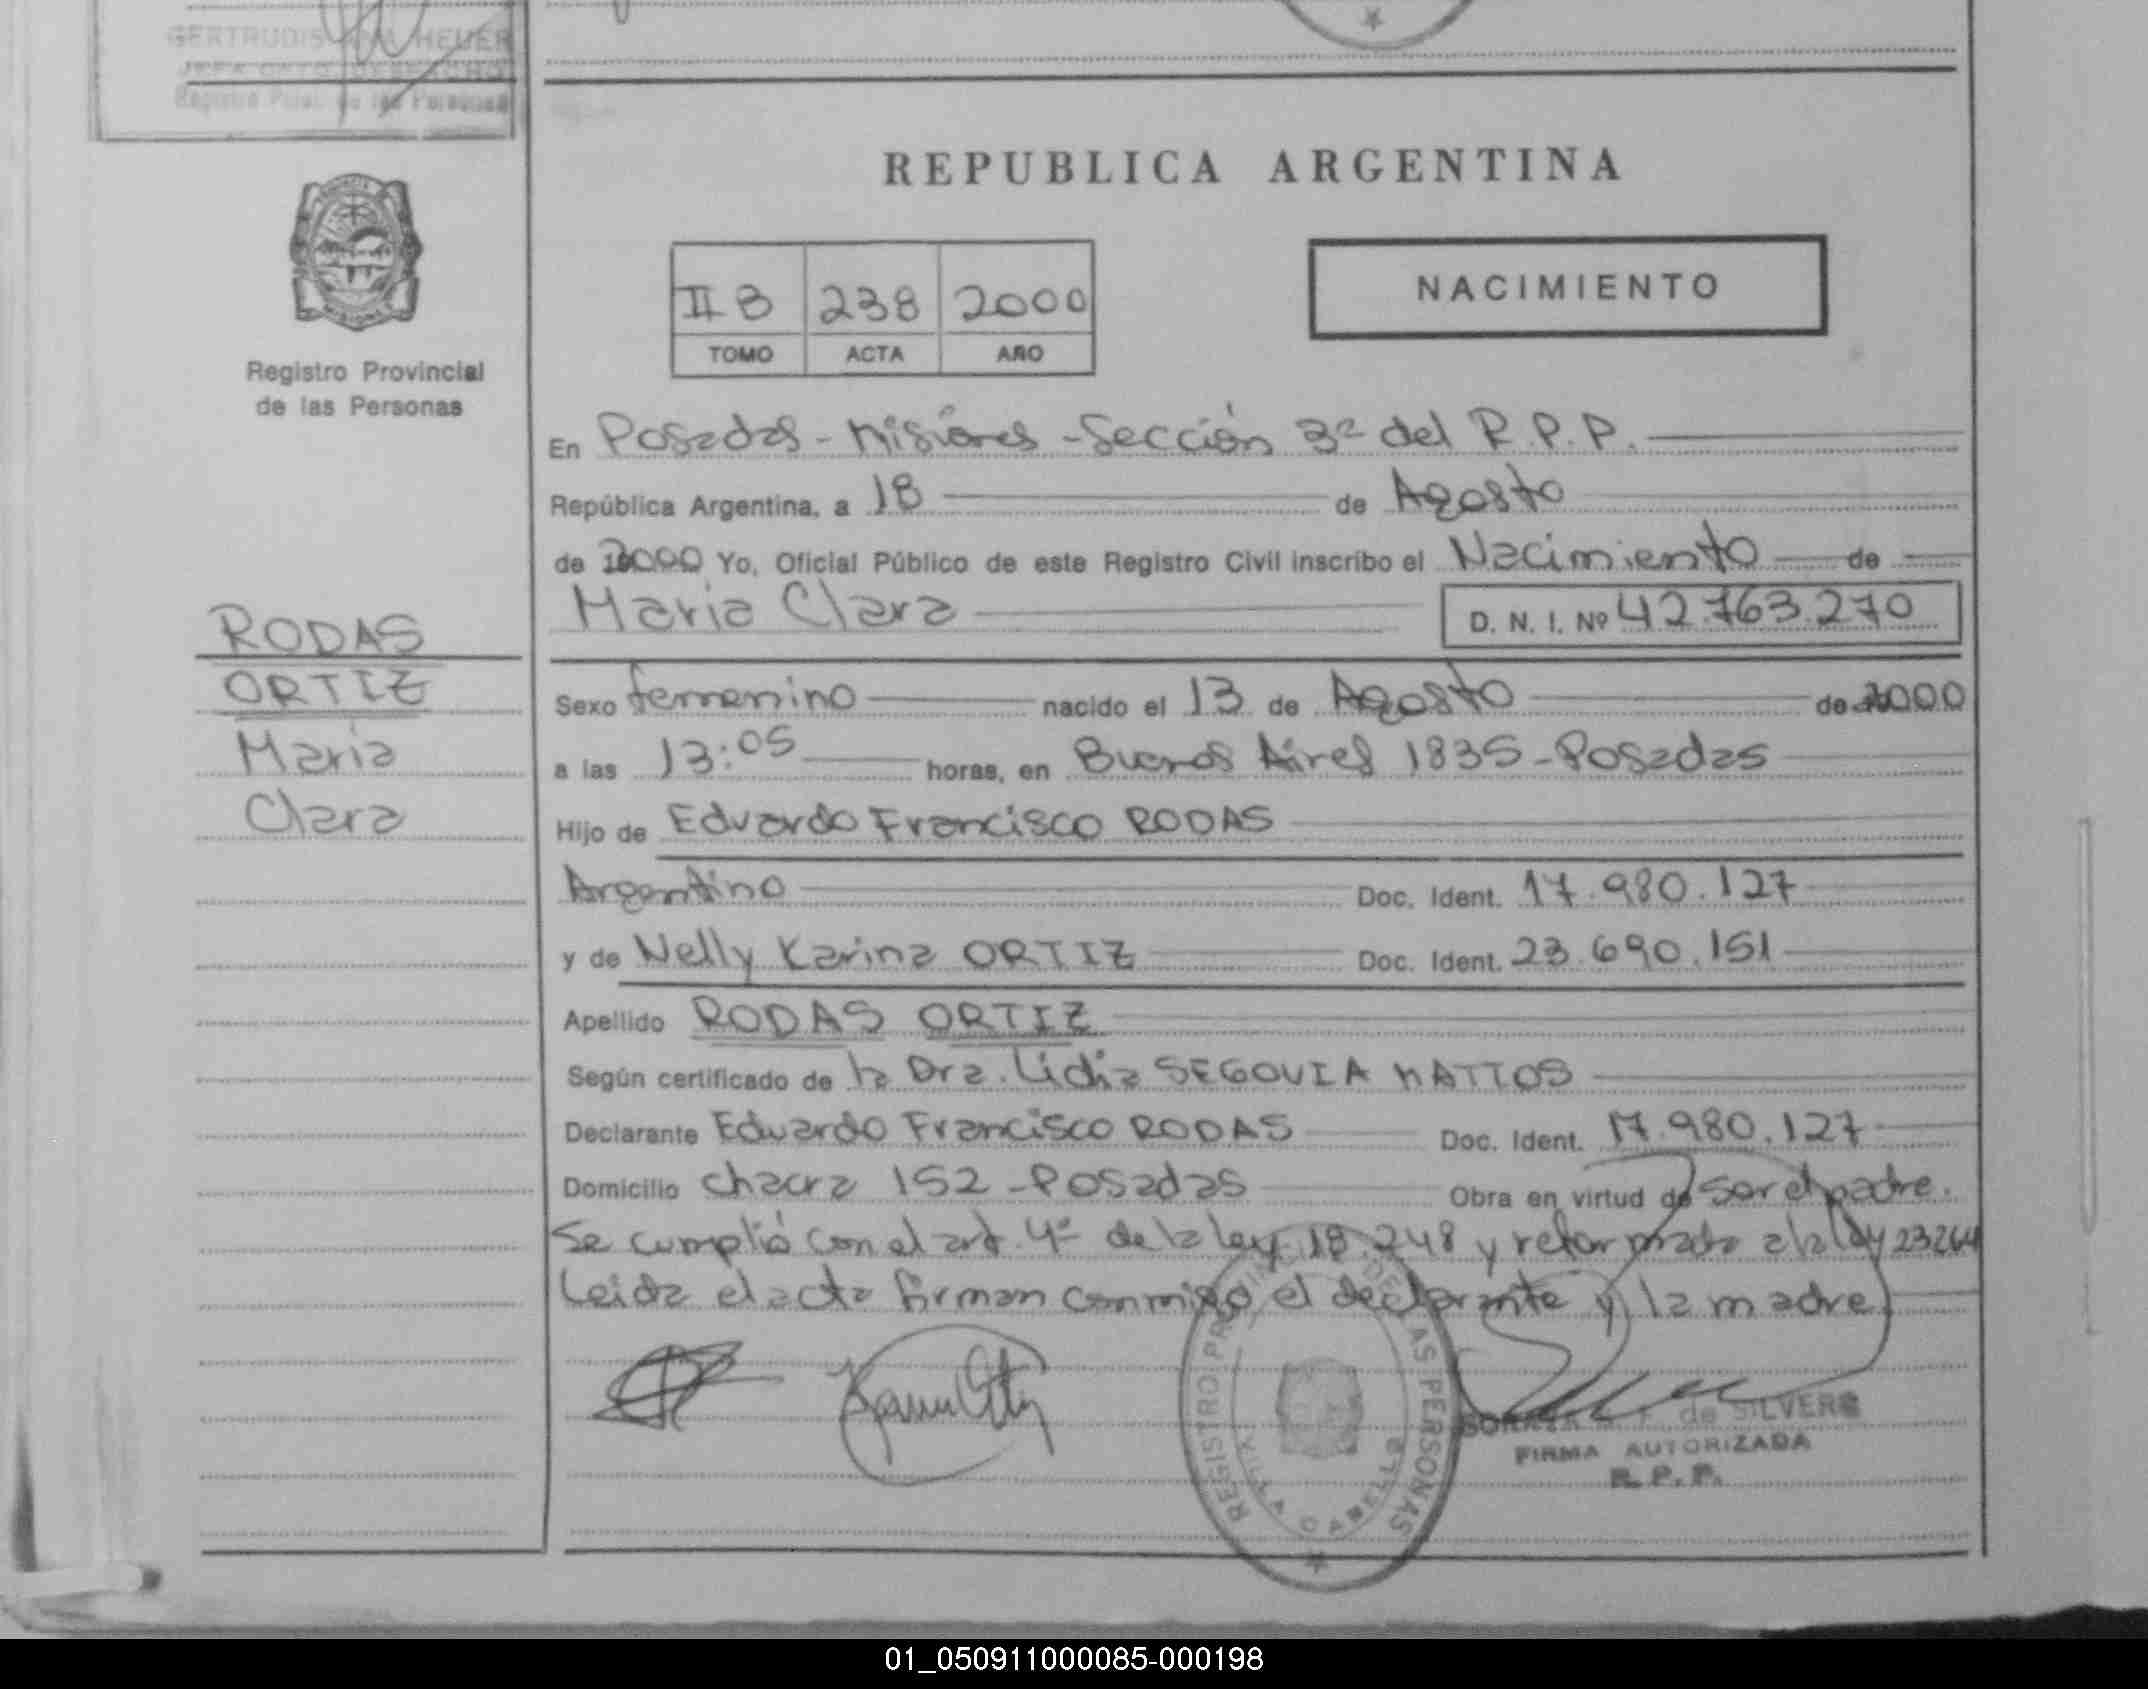 GERTRUDIS ANA HEUER
JEFA DPTO. DESPACHO
Registro Pcial. de las Personas
REPUBLICA ARGENTINA
NACIMIENTO
II B 238 2000
TOMO ACTA AÑO
Registro Provincial
de las Personas
En Posadas - Misiones - Sección 3ª del R.P.P.
República Argentina, a 18 de Agosto
de 2000 Yo, Oficial Público de este Registro Civil inscribo el Nacimiento de
Maria Clara D. N. I. Nº 42.763.270
RODAS
ORTIZ
Maria
Clara
Sexo femenino nacido el 13 de Agosto de 2000
a las 13:05 horas, en Buenos Aires 1835 - Posadas
Hijo de Eduardo Francisco RODAS
Argentino Doc. Ident. 17.980.127
y de Nelly Karina ORTIZ Doc. Ident. 23.690.151
Apellido RODAS ORTIZ
Según certificado de la Dra. Lidia SEGOVIA MATTOS
Declarante Eduardo Francisco RODAS Doc. Ident. 17.980.127
Domicilio chacra 152 - Posadas Obra en virtud de ser el padre.
Se cumplió con el art. 4º de la ley 18.248 y reformada a la ley 23264
Leida el acta firman conmigo el declarante y la madre
REGISTRO PROVINCIAL DE LAS PERSONAS
VILLA CABELLO
de SILVERO
FIRMA AUTORIZADA
R. P. P.
01_050911000085-000198